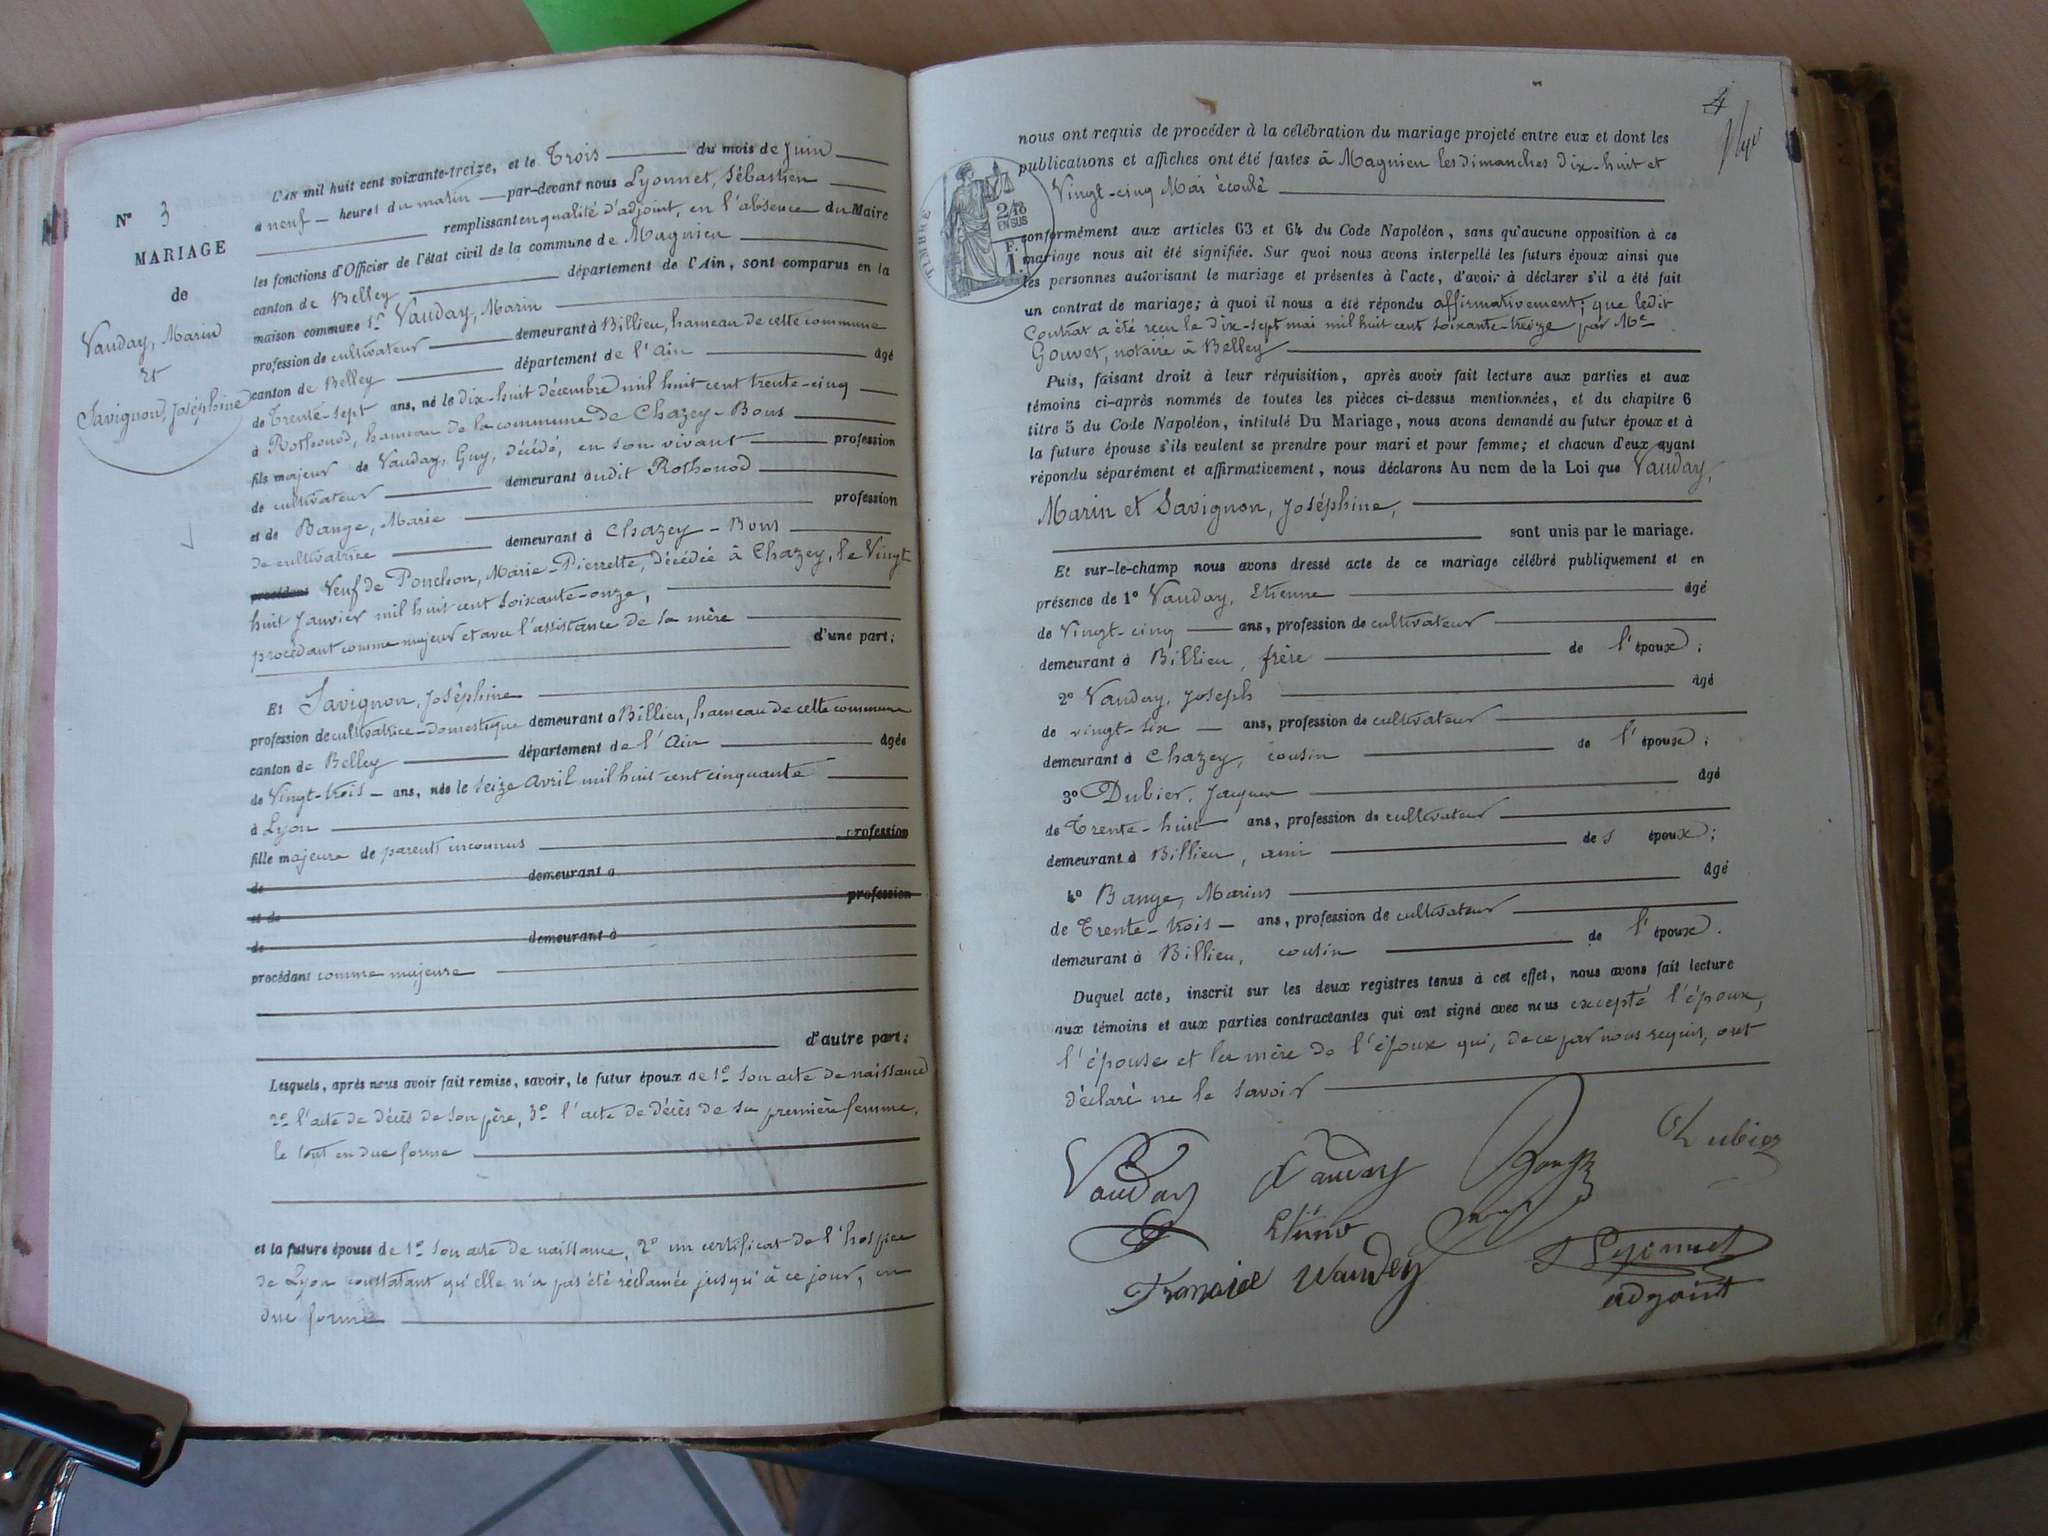 N° 3
MARIAGE
de
Vauday, Marin
et
Savignon, Joséphine
L'AN mil huit cent soixante-treize, et le Trois du mois de Juin
à neuf heures du matin par-devant nous Lyonnet, Sébastien
remplissant en qualité d'adjoint, en l'absence du Maire
les fonctions d'Officier de l'état civil de la commune de Magnieu
canton de Belley département de l'Ain, sont comparus en la
maison commune 1° Vauday, Marin
profession de cultivateur demeurant à Billieu, hameau de cette commune
canton de Belley département de l'Ain âgé
de Trente-sept ans, né le dix-huit décembre mil huit cent trente-cinq
à Rothonod, hameau de la commune de Chazey-Bons
fils majeur de Vauday, Guy, décédé, en son vivant profession
de cultivateur demeurant audit Rothonod
et de Bange, Marie profession
de cultivatrice demeurant à Chazey-Bons
procédant Veuf de Ponchon, Marie-Pierrette, décédée à Chazey, le Vingt
huit Janvier mil huit cent soixante-onze,
procédant comme majeur et avec l'assistance de sa mère
d'une part;
Et Savignon, Joséphine
profession de cultivatrice-domestique demeurant à Billieu, hameau de cette commune
canton de Belley département de l'Ain âgée
de Vingt-trois ans, née le seize Avril mil huit cent cinquante
à Lyon
fille majeure de parents inconnus profession
de demeurant à
et de profession
de demeurant à
procédant comme majeure
d'autre part;
Lesquels, après nous avoir fait remise, savoir, le futur époux de 1° son acte de naissance
2° l'acte de décès de son père, 3° l'acte de décès de sa première femme,
le tout en due forme
et la future épouse de 1° son acte de naissance, 2° un certificat de l'hospice
de Lyon constatant qu'elle n'a pas été réclamée jusqu'à ce jour, en
due forme
4
nous ont requis de procéder à la célébration du mariage projeté entre eux et dont les
publications et affiches ont été faites à Magnieu les dimanches dix-huit et
Vingt-cinq Mai écoulé
TIMBRE
2/10
EN SUS
F.
1.
conformément aux articles 63 et 64 du Code Napoléon, sans qu'aucune opposition à ce
mariage nous ait été signifiée. Sur quoi nous avons interpellé les futurs époux ainsi que
les personnes autorisant le mariage et présentes à l'acte, d'avoir à déclarer s'il a été fait
un contrat de mariage; à quoi il nous a été répondu affirmativement; que ledit
Contrat a été reçu le dix-sept mai mil huit cent soixante-treize par Me
Gouvet, notaire à Belley
Puis, faisant droit à leur réquisition, après avoir fait lecture aux parties et aux
témoins ci-après nommés de toutes les pièces ci-dessus mentionnées, et du chapitre 6
titre 5 du Code Napoléon, intitulé Du Mariage, nous avons demandé au futur époux et à
la future épouse s'ils veulent se prendre pour mari et pour femme; et chacun d'eux ayant
répondu séparément et affirmativement, nous déclarons Au nom de la Loi que Vauday,
Marin et Savignon, Joséphine,
sont unis par le mariage.
Et sur-le-champ nous avons dressé acte de ce mariage célébré publiquement et en
présence de 1° Vauday, Etienne âgé
de Vingt-cinq ans, profession de cultivateur
demeurant à Billieu, frère de l'époux;
2° Vauday, Joseph âgé
de vingt-six ans, profession de cultivateur
demeurant à Chazey, cousin de l'époux;
3° Dubier, Jacques âgé
de Trente-huit ans, profession de cultivateur
demeurant à Billieu, ami des époux;
4° Bange, Marius âgé
de Trente-trois ans, profession de cultivateur
demeurant à Billieu, cousin de l'époux.
Duquel acte, inscrit sur les deux registres tenus à cet effet, nous avons fait lecture
aux témoins et aux parties contractantes qui ont signé avec nous excepté l'époux,
l'épouse et la mère de l'époux qui, de ce par nous requis, ont
déclaré ne le savoir
Vauday Vauday Bange Dubier
Etienne
François Vauday S Lyonnet
adjoint